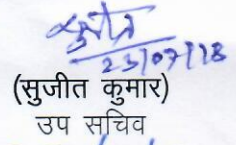 सुजीत
23/07/18
(सुजीत कुमार)
उप सचिव